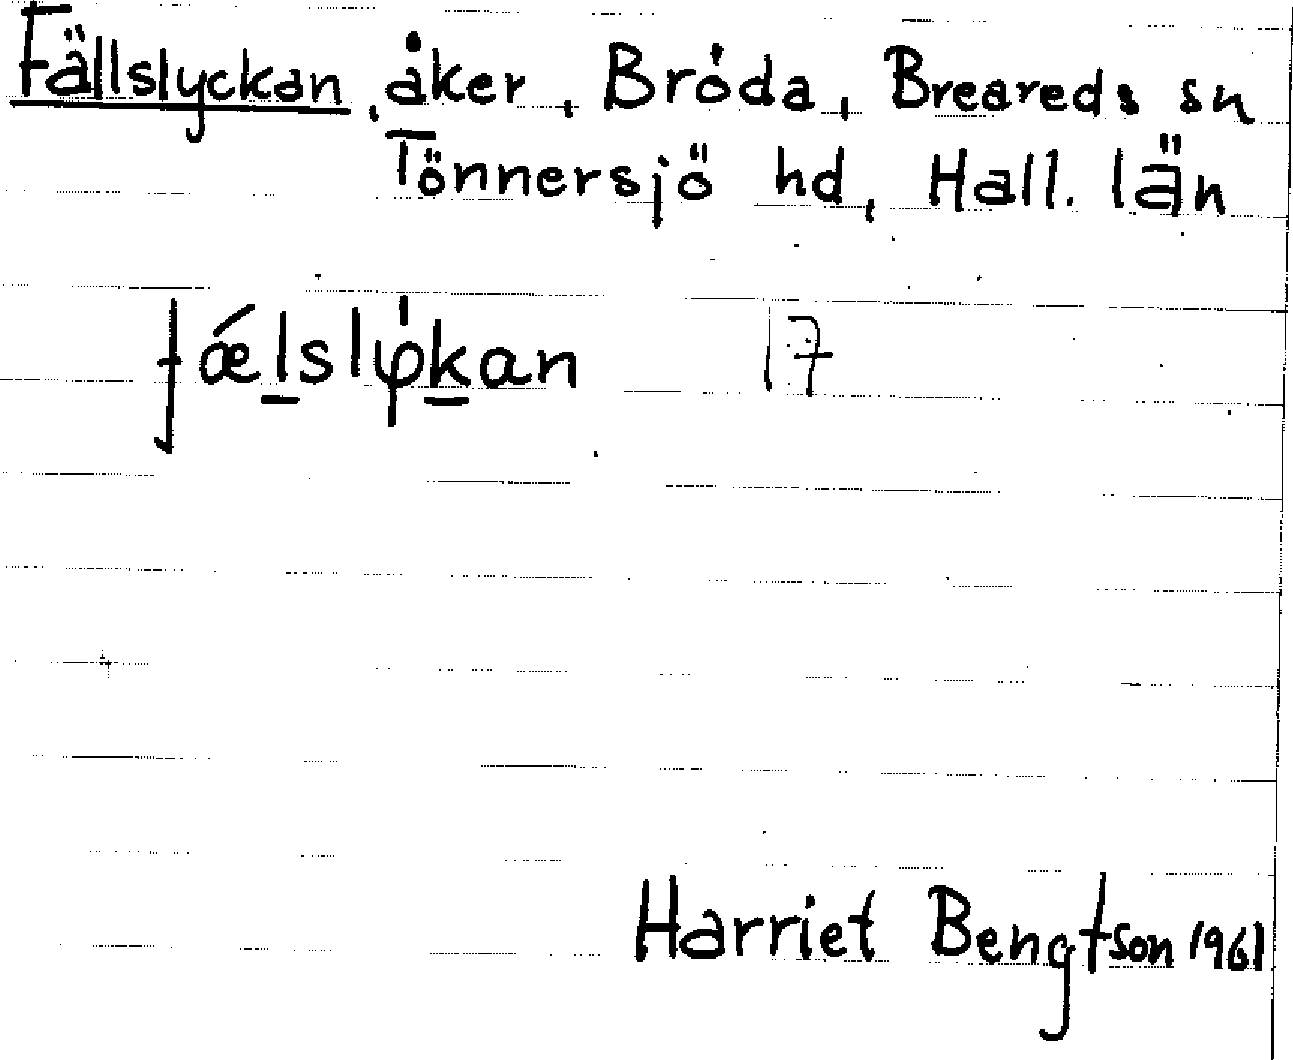 Fällslyckan, åker, Bröda, Breareds sn
Tönnersjö hd, Hall. län
fǽlslφ̀kan 17
Harriet Bengtson 1961